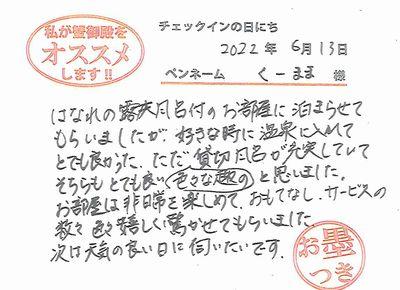 私が蟹御殿を
オススメ
します!!
チェックインの日にち
2022年 6月13日
ペンネーム くーまま 様
はなれの露天風呂付のお部屋に泊まらせて
もらいましたが、好きな時に温泉に入れて
とても良かった。ただ貸切風呂が充実していて
そちらもとても良い 色々な趣の と思いました。
お部屋は非日常を楽しめて、おもてなし、サービスの
数々 色々嬉しく驚かせてもらいました
次は天気の良い日に伺いたいです。
お墨
つき